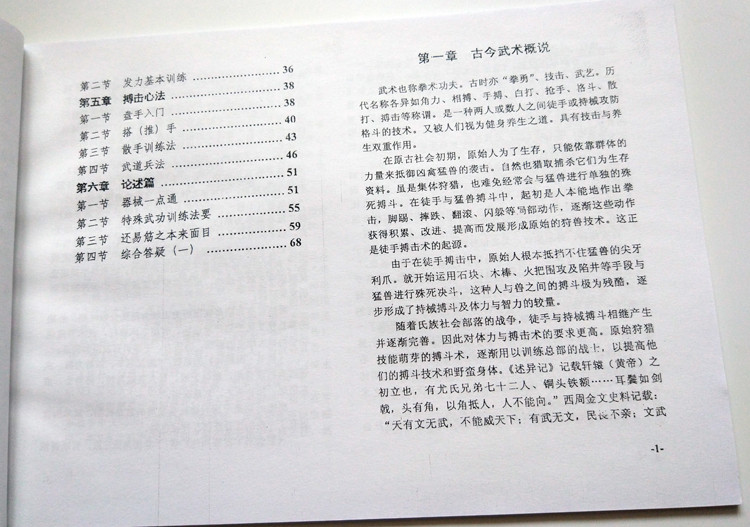 第二节 发力基本训练 ........................ 36
第五章 搏击心法 ........................ 38
第一节 盘手入门 ........................ 38
第二节 搭（推）手 ........................ 40
第三节 散手训练法 ........................ 43
第四节 武道兵法 ........................ 46
第六章 论述篇 ........................ 51
第一节 器械一点通 ........................ 51
第二节 特殊武功训练法要 ........................ 55
第三节 还易筋之本来面目 ........................ 59
第四节 综合答疑（一） ........................ 68
第一章 古今武术概说
武术也称拳术功夫。古时亦“拳勇”、技击、武艺。历
代名称各异如角力、相搏、手搏、白打、抢手、洛斗、散
打、搏击等称谓。是一种两人或数人之间徒手或持械攻防
格斗的技术。又被人们视为健身养生之道。具有技击与养
生双重作用。
在原古社会初期，原始人为了生存，只能依靠群体的
力量来抵御凶禽猛兽的袭击。自然也猎取捕杀它们为生存
资料。虽是集体狩猎，也难免经常会与猛兽进行单独的殊
死搏斗。在徒手与猛兽搏斗中，起初是人本能地作出拳
击，脚踢、摔跌、翻滚、闪躲等局部动作，逐渐这些动作
获得积累、改进、提高而发展形成原始的狩兽技术。这正
是徒手搏击术的起源。
由于在徒手搏击中，原始人根本抵挡不住猛兽的尖牙
利爪。就开始运用石块、木棒、火把围攻及陷井等手段与
猛兽进行殊死决斗，这种人与兽之间的搏斗极为残酷，逐
步形成了持械搏斗及体力与智力的较量。
随着氏族社会部落的战争，徒手与持械搏斗相继产生
并逐渐完善。因此对体力与搏击术的要求更高。原始狩猎
技能萌芽的搏斗术，逐渐用以训练总部的战士，以提高他
们的搏斗技术和野蛮身体。《述异记》记载轩辕（黄帝）之
初立也，有尤氏兄弟七十二人、铜头铁额……耳鬓如剑
戟，头有角，以角抵人，人不能向。”西周金文史料记载：
“天有文无武，不能威天下；有武无文，民畏不亲；文武
-1-